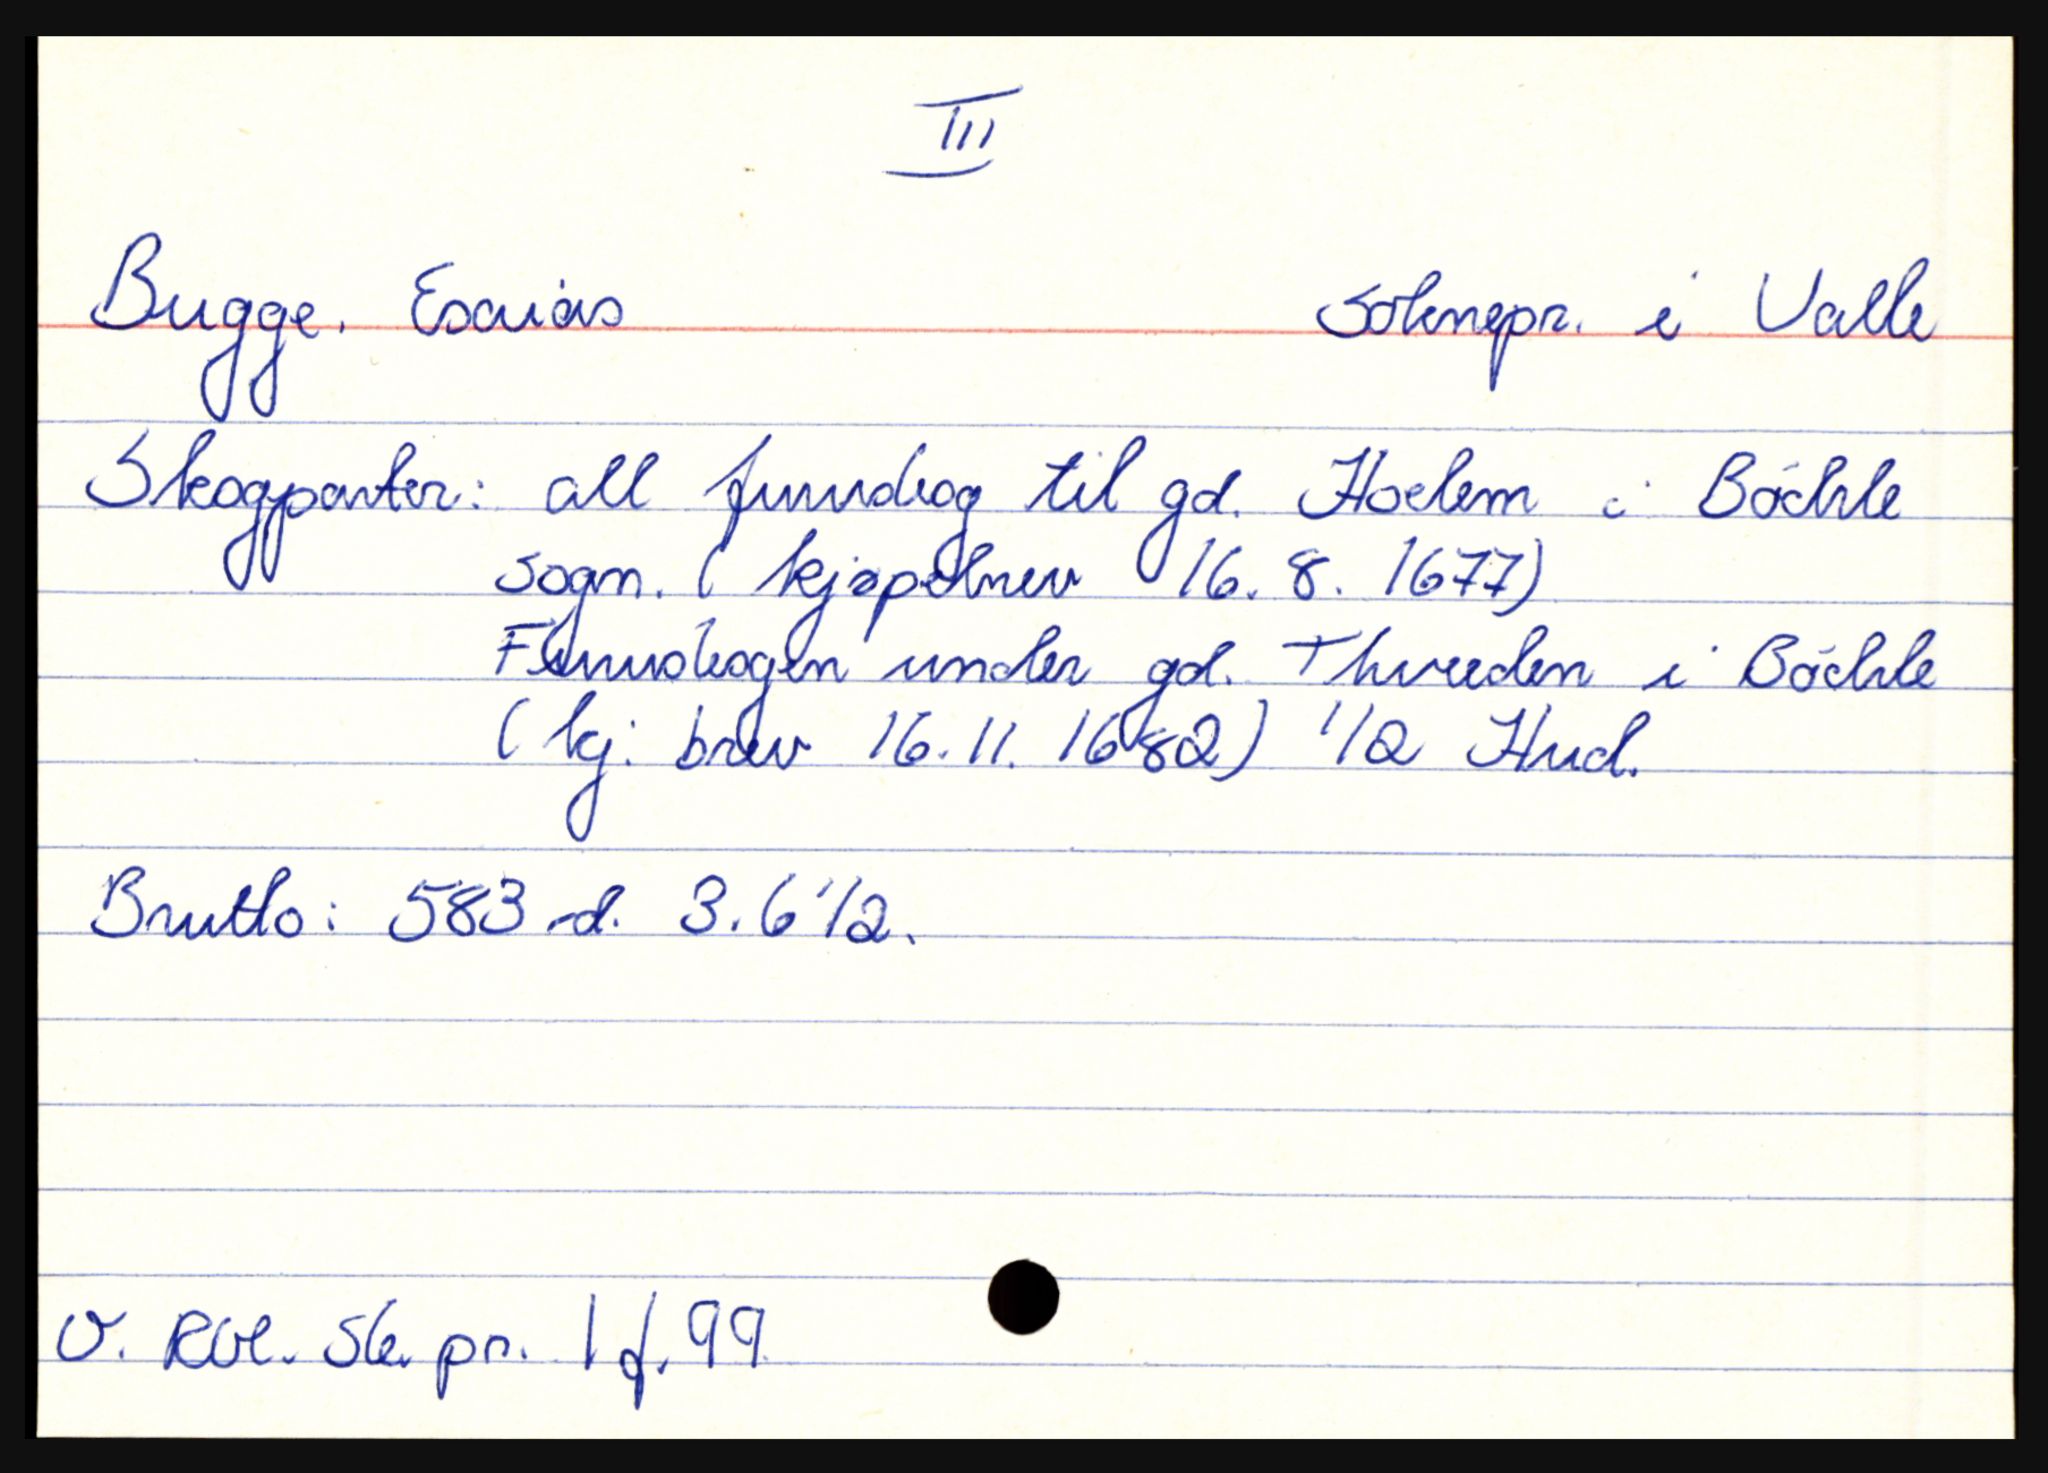 III
Bugge. Esaias soknepr. i Valle
Skogparter: all furuskog til gd. Hoslem i Böchle
sogn. (kjøpebrev 16. 8. 1677)
Furuskogen under gd. Thveden i Böchle
(kj. brev 16. 11. 1682) 1/2 Hud.
Brutto: 583 rd. 3. 6 1/2.
V. Rbl. Sk. pr. 1 f. 99